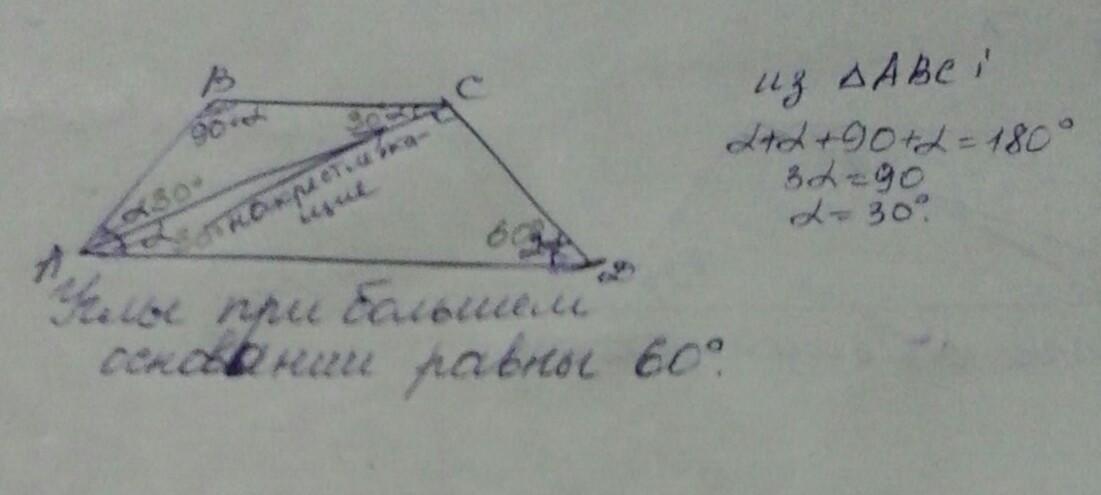 B
C
90+α
30 α
α 30°
α
накрест лежа-
щие
60°
A
D
из △ABC:
α+α+90+α=180°
3α=90
α=30°.
Углы при большем
основании равны 60°.